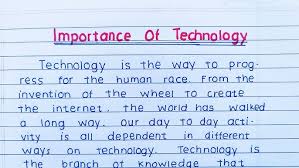 Importance Of Technology
Technology is the way to prog-
ress for the human race. From the
invention of the wheel to create
the internet, the world has walked
a long way. Our day to day acti-
vity is all dependent in different
ways on technology. Technology is
the branch of knowledge that